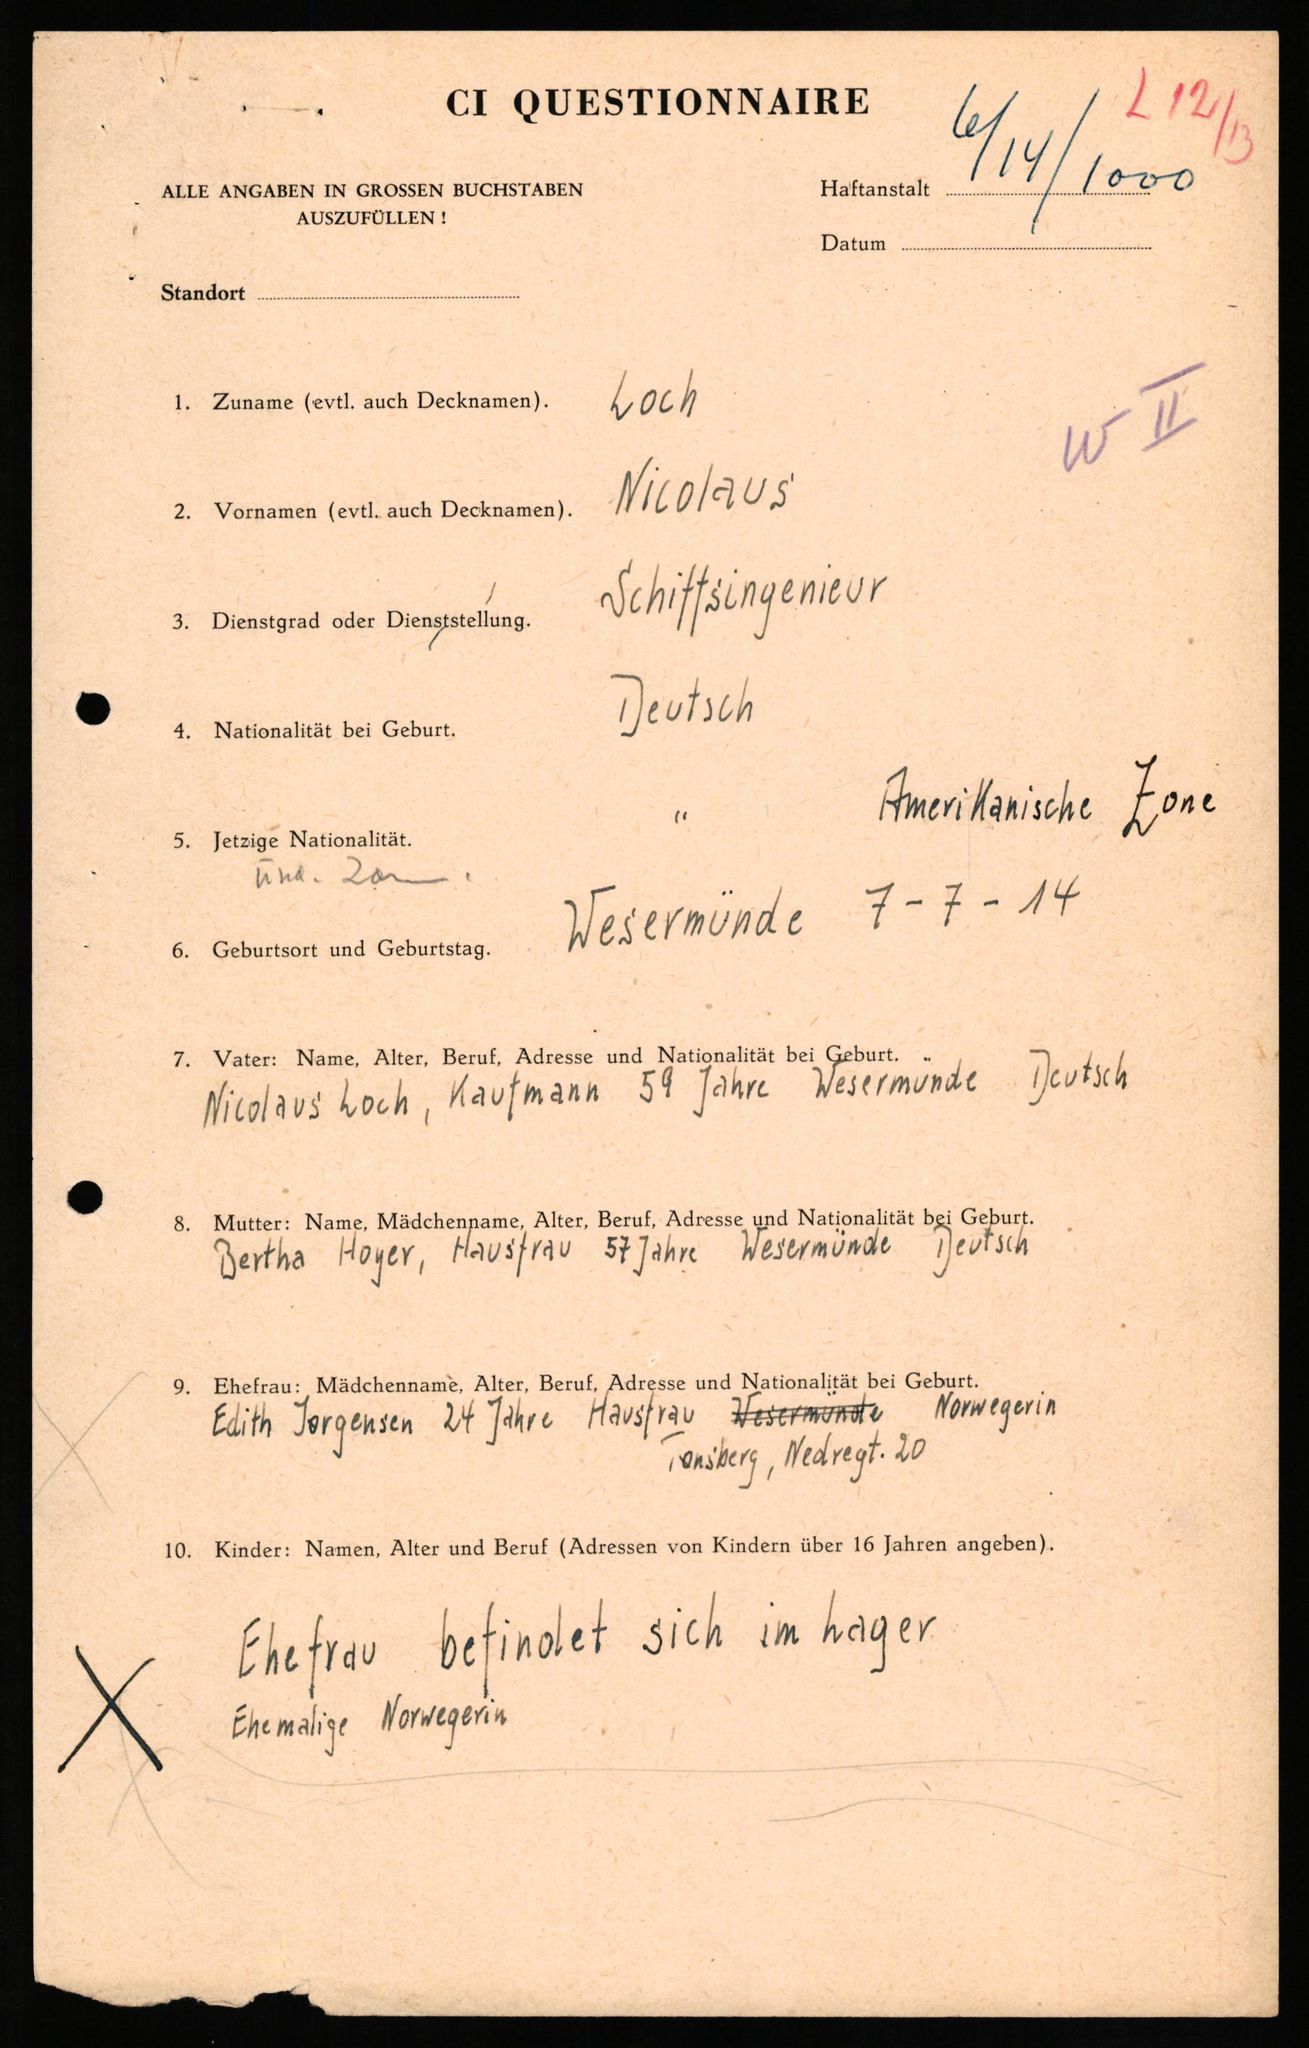 CI QUESTIONNAIRE
L 12/13
6/14/1000
ALLE ANGABEN IN GROSSEN BUCHSTABEN
AUSZUFÜLLEN !
Haftanstalt
Datum
Standort
1. Zuname (evtl. auch Decknamen). Loch
W II
2. Vornamen (evtl. auch Decknamen). Nicolaus
3. Dienstgrad oder Dienststellung. Schiffsingenieur
4. Nationalität bei Geburt. Deutsch
5. Jetzige Nationalität. " Amerikanische Zone
und.
6. Geburtsort und Geburtstag. Wesermünde 7-7-14
7. Vater: Name, Alter, Beruf, Adresse und Nationalität bei Geburt.
Nicolaus Loch, Kaufmann 59 Jahre Wesermünde Deutsch
8. Mutter: Name, Mädchenname, Alter, Beruf, Adresse und Nationalität bei Geburt.
Bertha Hoyer, Hausfrau 57 Jahre Wesermünde Deutsch
9. Ehefrau: Mädchenname, Alter, Beruf, Adresse und Nationalität bei Geburt.
Edith Jørgensen 24 Jahre Hausfrau Wesermünde Norwegerin
Tønsberg, Nedregt. 20
10. Kinder: Namen, Alter und Beruf (Adressen von Kindern über 16 Jahren angeben).
Ehefrau befindet sich im Lager
Ehemalige Norwegerin